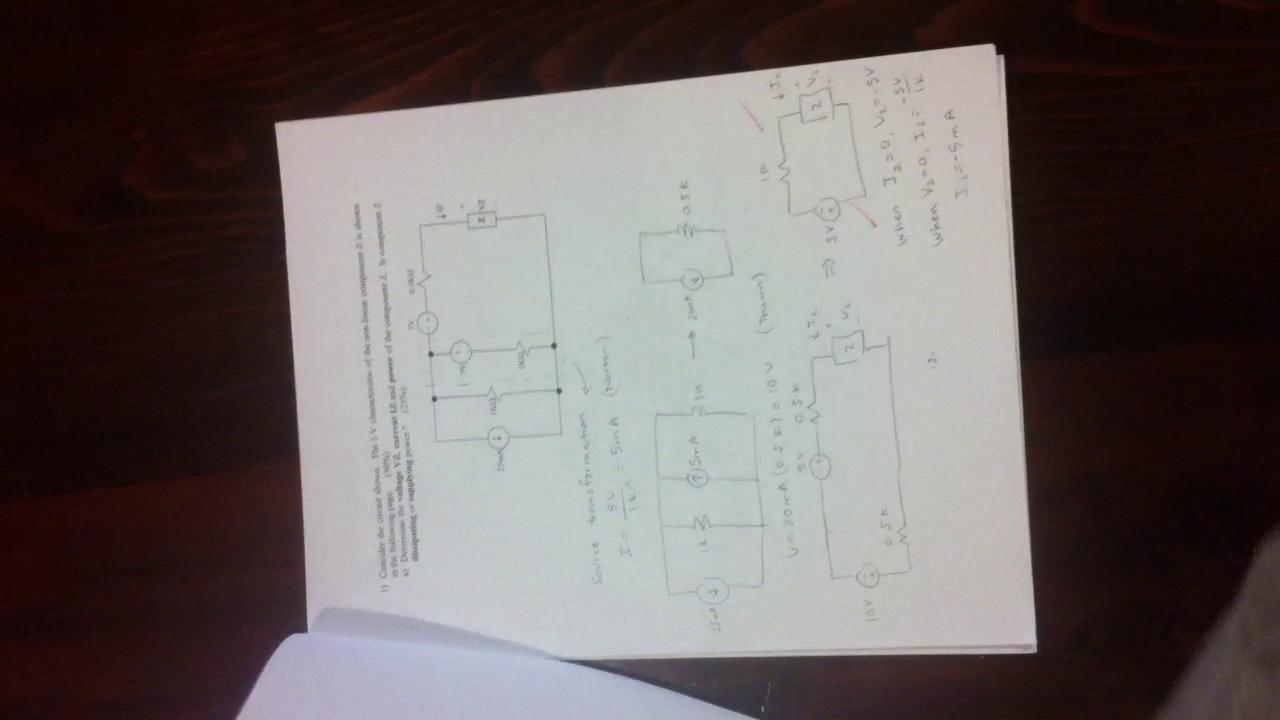 1) Consider the circuit shown. The I-V characteristic of the non-linear component Z is shown
in the following page. (50%)
a) Determine the voltage VZ, current IZ and power of the component Z. Is component Z
dissipating or supplying power? (25%)
0.5kΩ
IZ
+
Z
VZ
1kΩ
1kΩ
Source transformation
I = 5V / 1kΩ = 5mA (Norton)
25mA
1k
5mA
1k
→ 20mA
0.5k
V = 20mA (0.5k) = 10V (Theven)
10V
5V
0.5k
0.5k
↓Iz
+
Z
Vz
-
⇒ 5V
1k
↓Iz
+
Z
Vz
-
When Iz=0, Vz=-5V
When Vz=0, Iz= -5V / 1k
Iz=-5mA
-2-